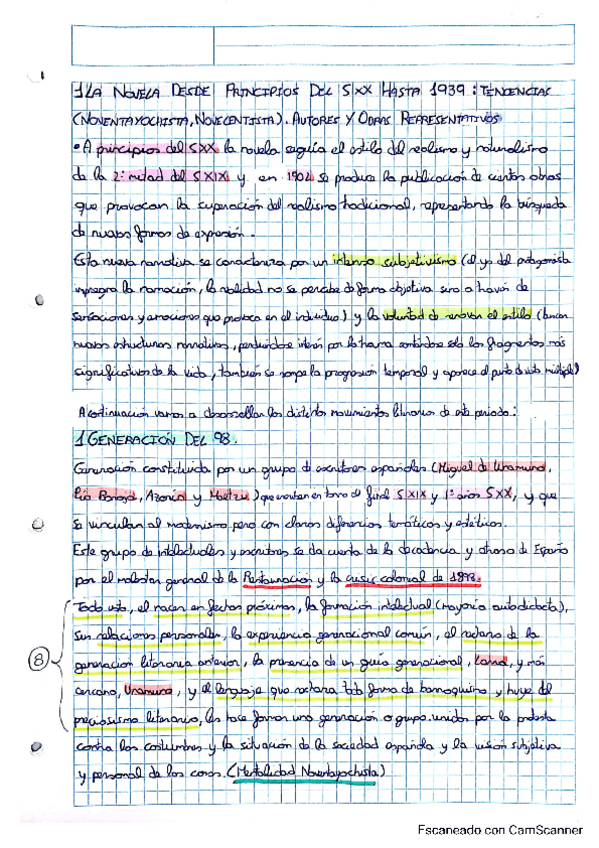 1 LA NOVELA DESDE PRINCIPIOS DEL SXX HASTA 1939: TENDENCIAS
(NOVENTAYOCHISTA, NOVECENTISTA). AUTORES Y OBRAS REPRESENTATIVOS
• A principios del SXX la novela seguía el estilo del realismo y naturalismo
de la 2ª mitad del SXIX y, en 1902 se produce la publicación de cientas obras
que provocan la superación del realismo tradicional, representando la búsqueda
de nuevas formas de expresión.
Esta nueva narrativa se caracteriza por un intenso subjetivismo (el yo del protagonista
impregna la narración, la realidad no se percibe de forma objetiva sino a través de
sensaciones y emociones que provoca en el individuo) y la voluntad de renovar el estilo (buscan
nuevas estructuras narrativas, perdiéndose interés por la trama contándose solo los fragmentos más
significativos de la vida, también se rompe la progresión temporal y aparece el punto de vista múltiple)
A continuación vamos a desarrollar los distintos movimientos literarios de este periodo:
1 GENERACIÓN DEL 98.
Generación constituida por un grupo de escritores españoles (Miguel de Unamuno,
Pío Baroja, Azorín y Maetzu) que escriben en torno al final SXIX y 1os años SXX, y que
se vinculan al modernismo pero con claras diferencias temáticas y estéticas.
Este grupo de intelectuales y escritores se da cuenta de la decadencia y atraso de España
por el malestar general de la Restauración y la crisis colonial de 1898.
Todo esto, el nacer en fechas próximas, la formación intelectual (mayoría autodidacta),
sus relaciones personales, la experiencia generacional común, el rechazo de la
generación literaria anterior, la presencia de un guía generacional, Larra, y más
cercano, Unamuno, y el lenguaje que rechaza toda forma de barroquismo y huye del
preciosismo literario, les hace formar una generación o grupo unidos por la protesta
contra las costumbres y la situación de la sociedad española y la visión subjetiva
y personal de las cosas. (Mentalidad Noventayochista)
8
Escaneado con CamScanner